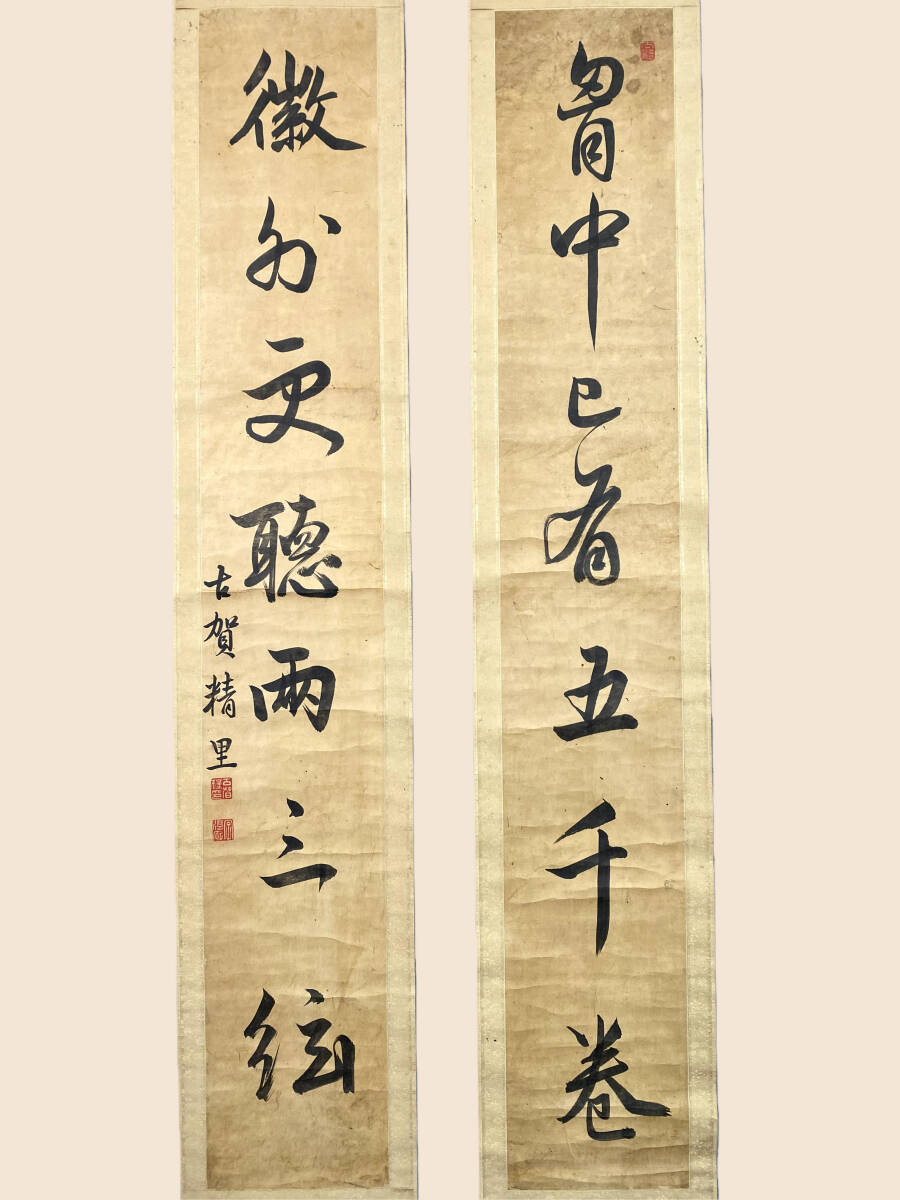 胷中已有五千卷
徽外更聽兩三絃
古賀精里